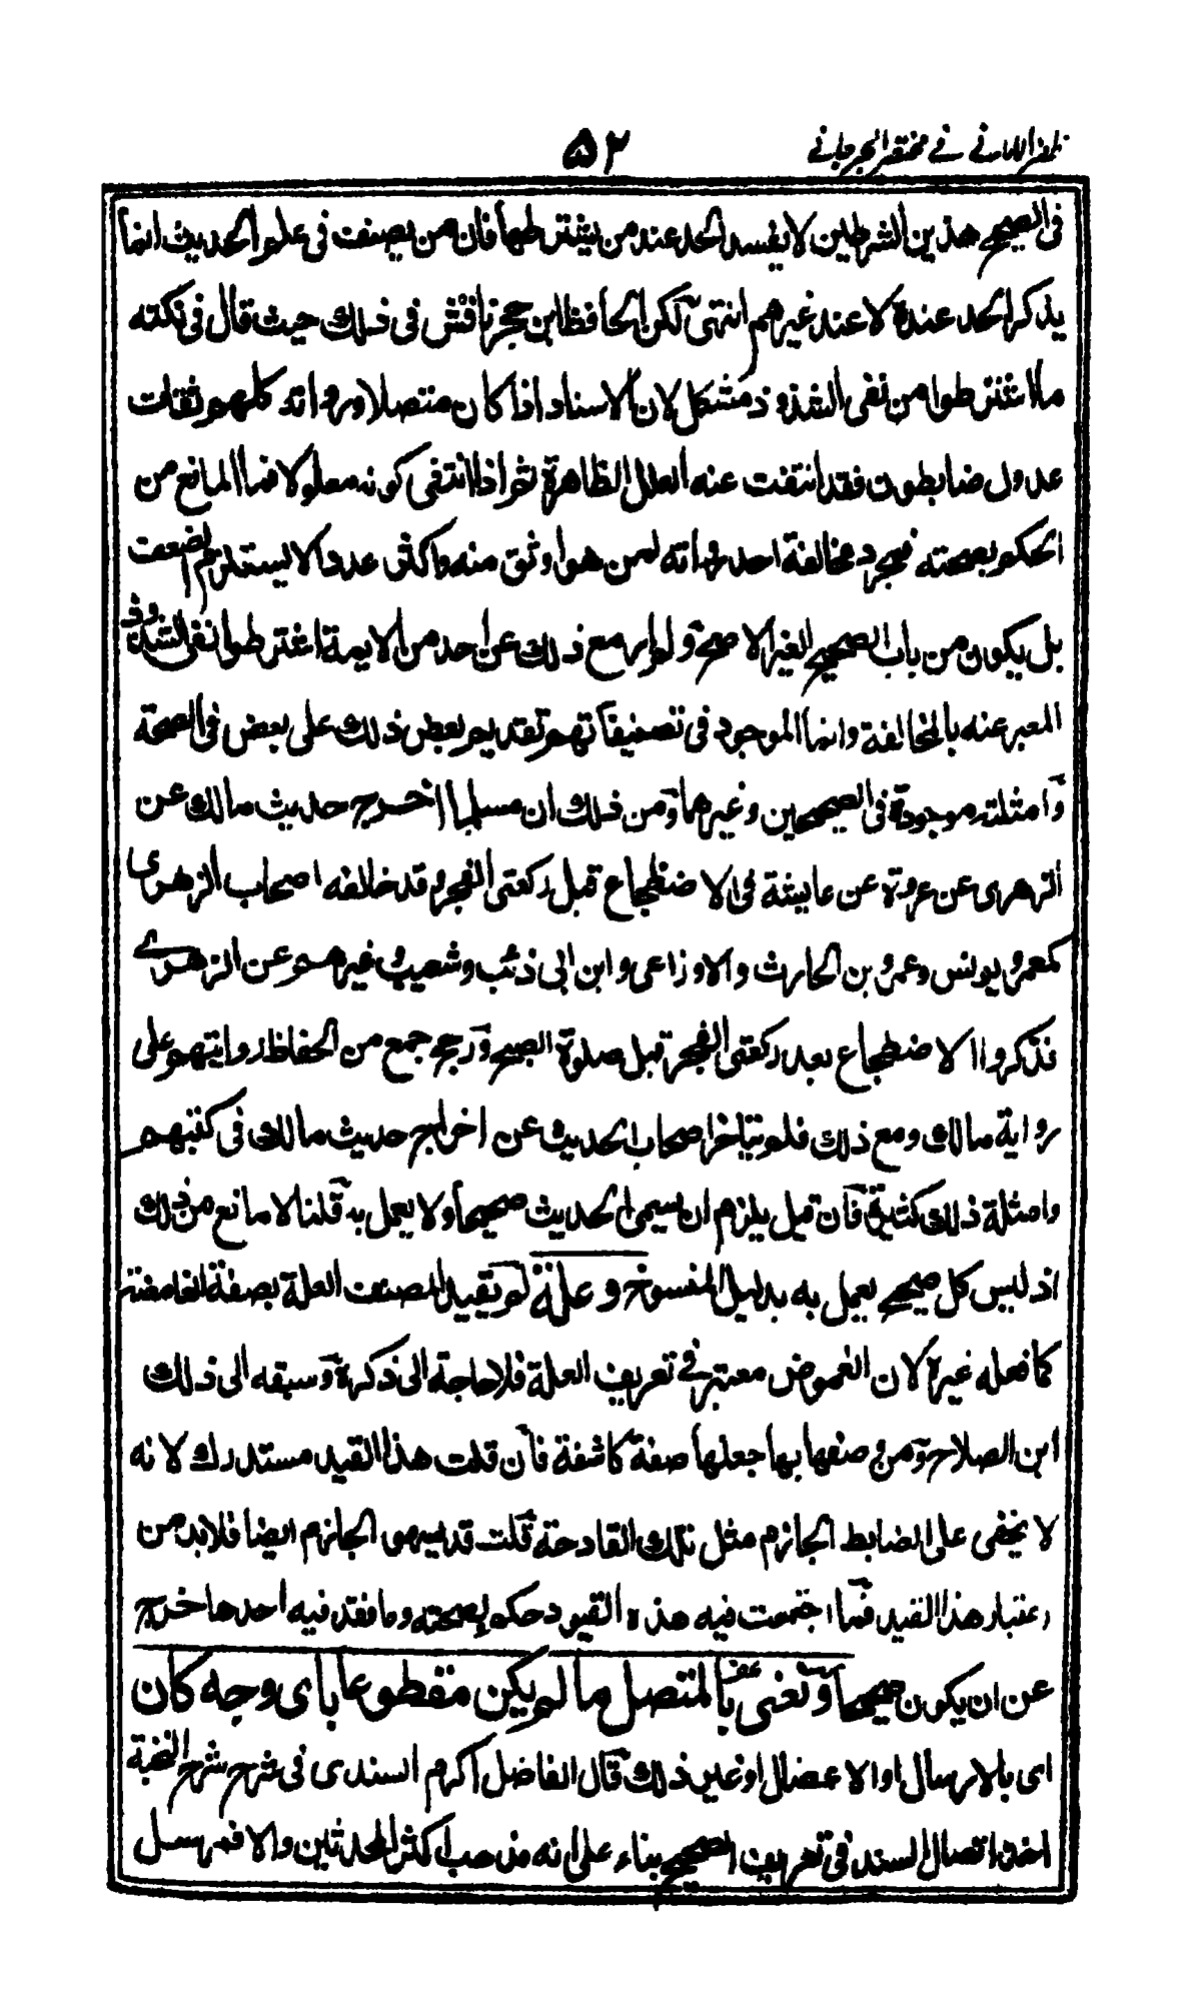 ظفر الاماني في مختصر الجرجاني
٥٢
في الصحيح هذين الشرطين لا يفسد الحد عند من يشترطهما فان من يصنف في علم الحديث انما
يذكر الحد عنده لا عند غيرهم انتهى لكن الحافظ ابن حجر ناقش في ذلك حيث قال في نكته
ما اشترطوا من نفي الشذوذ مشكل لان الاسناد اذا كان متصلا ورواته كلهم ثقات
عدول ضابطون فقد انتفت عنه العلل الظاهرة ثم اذا انتفى كونه معلولا فما المانع من
الحكم بصحته فمجرد مخالفة احد رواته لمن هو اوثق منه واكثر عددا لا يستلزم الضعف
بل يكون من باب الصحيح والاصح ولم ار مع ذلك عن احد من الايمة اشترطوا نفي الشذوذ
المعبر عنه بالمخالفة وانما الموجود في تصنيفاتهم تقديم بعض ذلك على بعض في الصحة
وامثلته موجودة في الصحيحين وغيرهما ومن ذلك ان مسلما اخرج حديث مالك عن
الزهرى عن عروة عن عايشة في الاضطجاع قبل ركعتى الفجر وقد خالفه اصحاب الزهرى
كمعمر ويونس وعمرو بن الحارث والاوزاعى وابن ابى ذئب وشعيب وغيرهم عن الزهرے
فذكروا الاضطجاع بعد ركعتى الفجر قبل صلوة الصبح ورجح جمع من الحفاظ روايتهم على
رواية مالك ومع ذلك فلم يتاخر اصحاب الحديث عن اخراج حديث مالك في كتبهم
وامثلة ذلك كثيرة فان قيل يلزم ان يسمى الحديث صحيحا ولا يعمل به قلنا لا مانع من ذلك
اذ ليس كل صحيح يعمل به بدليل المنسوخ وعلة لم يقيد المصنف العلة بصفة الغامضة
كما فعله غيره لان الغموض معتبر في تعريف العلة فلا حاجة الى ذكره وسبقه الى ذلك
ابن الصلاح ومن وصفها بها جعلها صفة كاشفة فان قلت هذا القيد مستدرك لانه
لا يخفى على الضابط الجازم مثل تلك القادحة قلت قد يسهو الجازم ايضا فلا بد من
اعتبار هذا القيد فما اجتمعت فيه هذه القيود حكم بصحته وما فقد فيه احدها خرج
عن ان يكون صحيحا ونعنى بالمتصل ما لم يكن مقطوعا باى وجه كان
اى بالارسال او الاعضال او غير ذلك قال الفاضل اكرم السندى في شرح شرح النخبة
اخذ اتصال السند في تعريف الصحيح بناء على انه مذهب اكثر المحدثين والا فمرسل